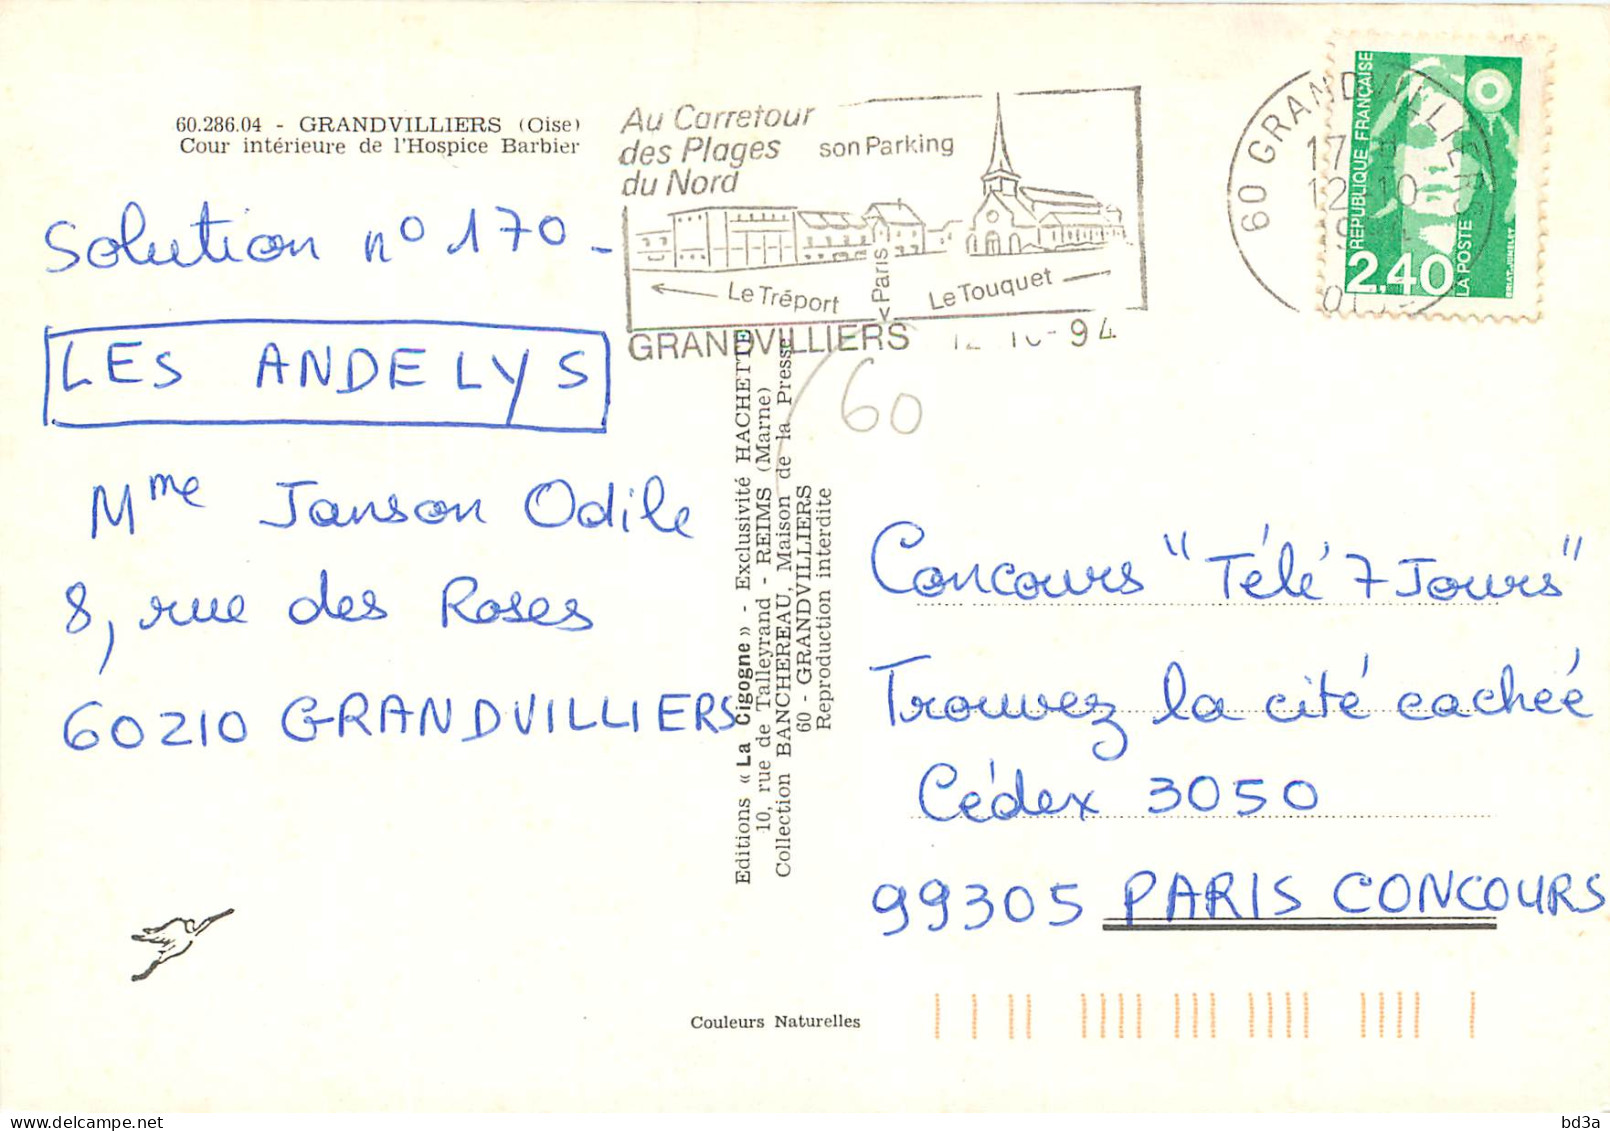 60.286.04 - GRANDVILLIERS (Oise)
Cour intérieure de l'Hospice Barbier
Solution n° 170 -
LES ANDELYS
Mme Janson Odile
8, rue des Roses
60210 GRANDVILLIERS
Au Carrefour
des Plages
du Nord
son Parking
Le Tréport
<Paris
Le Touquet
GRANDVILLIERS 12-10-94
60
60 GRANDVILLIERS
17 H
12-10
OISE
REPUBLIQUE FRANÇAISE
2,40
LA POSTE
BRIAT-JUMELET
Editions « La Cigogne » - Exclusivité HACHETTE
10, rue de Talleyrand - REIMS (Marne)
Collection BANCHEREAU, Maison de la Presse
60 - GRANDVILLIERS
Reproduction interdite
Concours "Télé 7 Jours"
Trouvez la cité cachée
Cédex 3050
99305 PARIS CONCOURS
Couleurs Naturelles
delcampe.net
bd3a